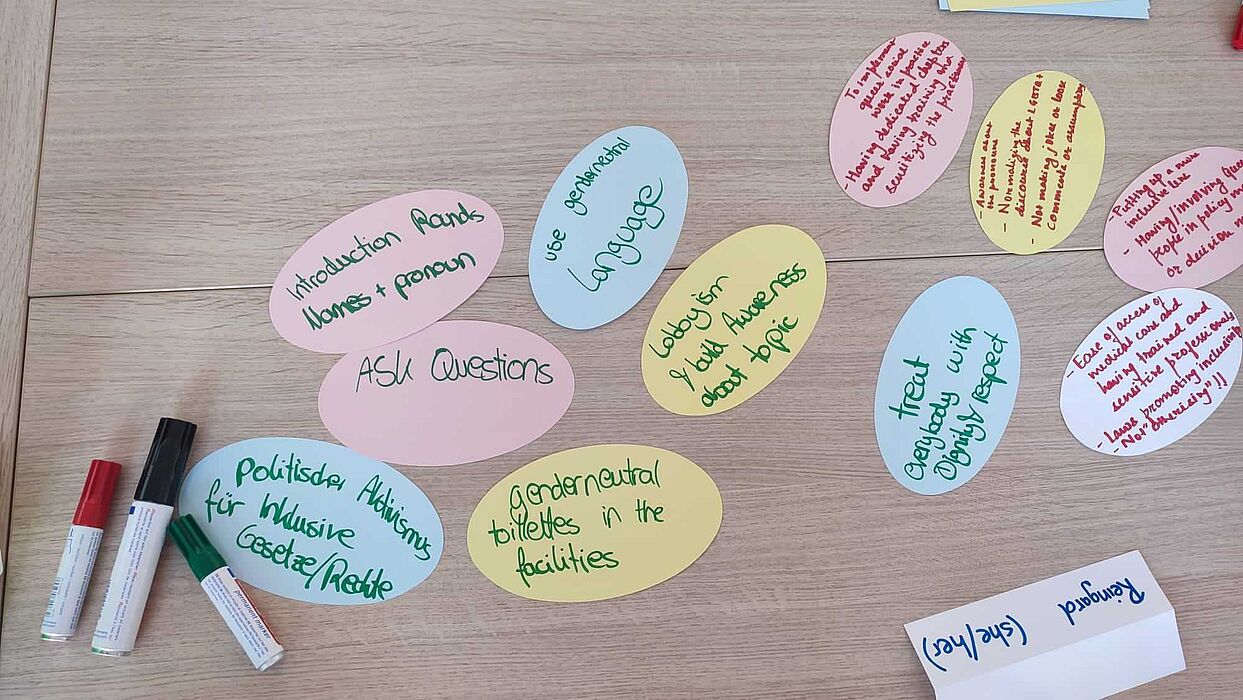 Introduction Rounds
Names + pronoun
use genderneutral
Language
ASK Questions
Lobbyism
& build Awareness
about topic
Politischer Aktivismus
für Inklusive
Gesetze/Rechte
genderneutral
toillettes in the
facilities
treat
everybody with
Dignity & respect
To implement
queer social
work in practice
- Having dedicated chapters
and having training and
sensitizing the practitioners
- Awareness about
the pronouns
- Normalizing the
discourse about LGBTQ+
- Not making jokes or loose
comments or assumptions
- Putting up a more
inclusive law
- Having/involving
people in policy
or decision
- Ease of access of
medical care and
having trained and
sensitive professionals
- Laws promoting inclusivity
- Not "othericising"!!
Reingard
(she/her)
permanent marker